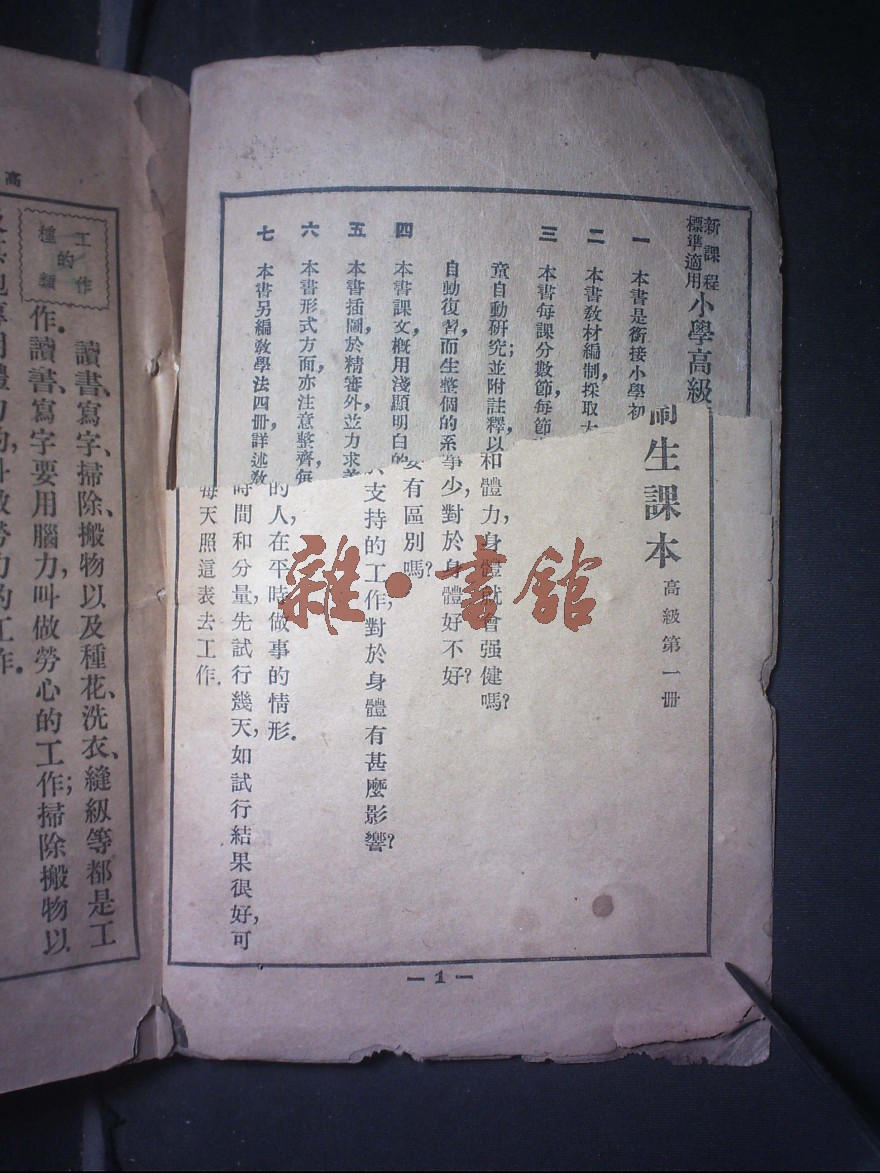 新課程
標準適用
小學高級
一 本書是銜接小學初
二 本書教材編制採取
三 本書每課分數節每節
童自動研究；並附註釋以
自動復習，而生整個的系
四 本書課文，概用淺顯明白的
五 本書插圖，於精審外並力求
六 本書形式方面，亦注意整齊，每
七 本書另編教學法四冊，詳述教
生課本 高級第一冊
和體力，身體就會强健嗎？
事少，對於身體好不好？
要有區別嗎？
支持的工作，對於身體有甚麼影響？
的人，在平時做事的情形．
時間和分量，先試行幾天，如試行結果很好，可
每天照這表去工作．
— 1 —
雜·書館
高
工作的種類
讀書、寫字、掃除、搬物以及種花、洗衣、縫級等都是工
作．讀書、寫字要用腦力，叫做勞心的工作；掃除、搬物以
叫做勞力的工作．